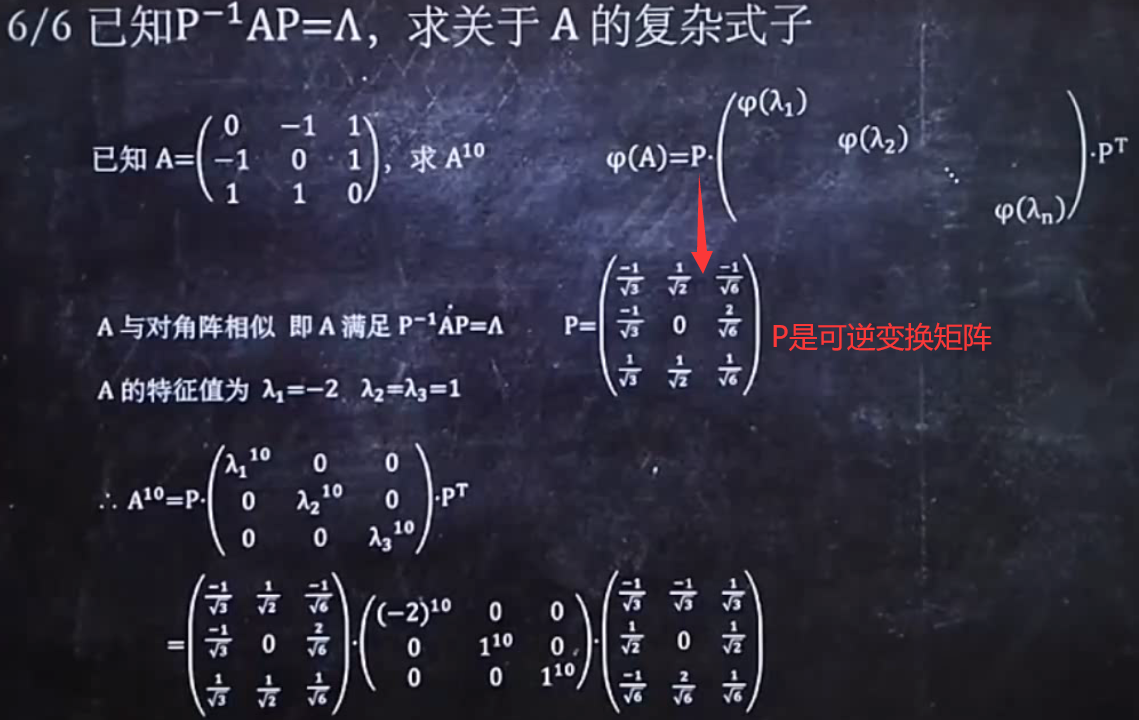 6/6 已知P⁻¹AP=Λ，求关于 A 的复杂式子
已知 A=
0 −1 1
−1 0 1
1 1 0
，求 A¹⁰
φ(A)=P·
φ(λ₁)
φ(λ₂)
⋱
φ(λₙ)
·Pᵀ
A 与对角阵相似 即 A 满足 P⁻¹AP=Λ
P=
-1/√3 1/√2 -1/√6
-1/√3 0 2/√6
1/√3 1/√2 1/√6
P是可逆变换矩阵
A 的特征值为 λ₁=−2 λ₂=λ₃=1
∴ A¹⁰=P·
λ₁¹⁰ 0 0
0 λ₂¹⁰ 0
0 0 λ₃¹⁰
·Pᵀ
=
-1/√3 1/√2 -1/√6
-1/√3 0 2/√6
1/√3 1/√2 1/√6
·
(−2)¹⁰ 0 0
0 1¹⁰ 0
0 0 1¹⁰
·
-1/√3 -1/√3 1/√3
1/√2 0 1/√2
-1/√6 2/√6 1/√6